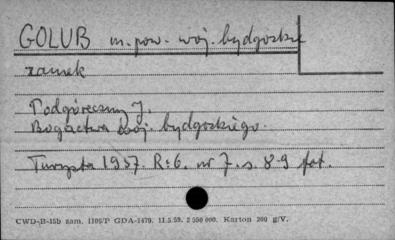 GOLUB m. pow. woj. bydgoskie
zamek
Podgóreczny J.
Bogactwa woj. bydgoskiego.
Turysta 1957. R:6. nr 7. s. 8-9 fot.
CWD-B-15b zam. 1105/P GDA-1479. 11.5.59. 2 550 000. Karton 200 g/V.